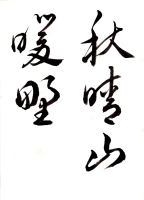 秋晴山
暖野